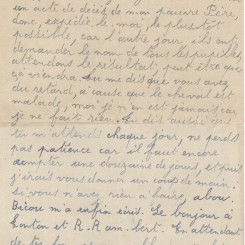 un acte de décif de mon pauvre Père,
donc, expédie le moi, le plus tot
possible, car l'autre jour ils ont
demander le nom de tous les
attendons le résultat, peut être que
ça viendra. tu me dis que vous avez
du retard, à cause que le cheval est
malade, moi j'en est jamais car
je ne fait rien. tu dis aussi que
tu m'attends chaque jour, ne perds
pas patience car il faut encore
compter une douzaine de jours, et puis
j'irais vous donner un coup de main.
Si vous n'avez rien à faire,
m'a enfin écrit. Le bonjour à
et R. R am bert. En attendant
de